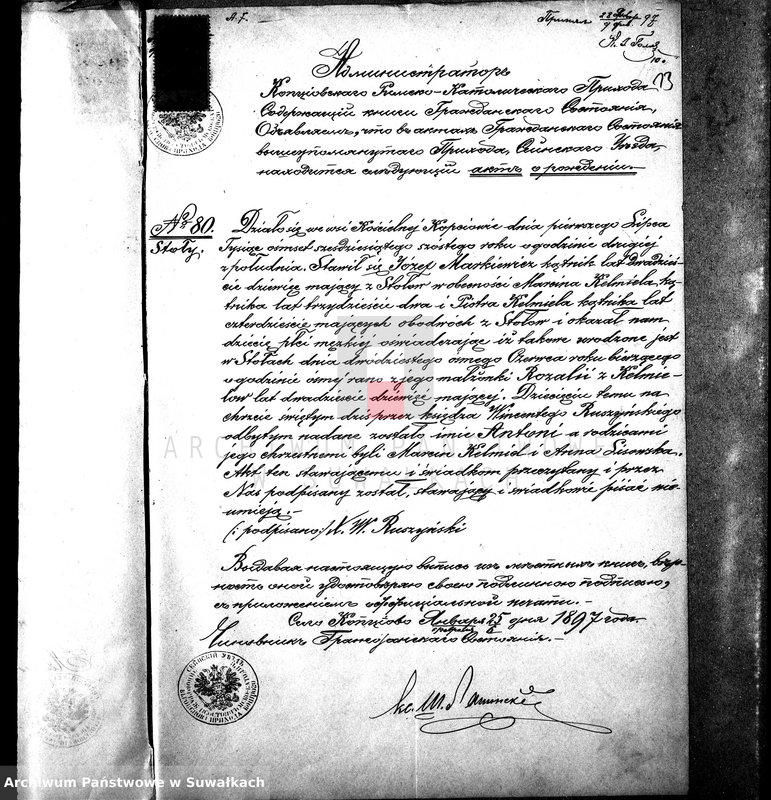 А. Г.
Администраторъ
Копціовскаго Римско-Католическаго Прихода
Содержащій книги Гражданскаго Состоянія,
Объявляетъ, что въ актахъ Гражданскаго Состоянія
вышеупомянутаго Прихода, Сейнскаго Уѣзда,
находится слѣдующій актъ о рожденіи.-
№ 80.
Stoły.
Działo się we wsi Kościelnej Kopciowie dnia pierwszego Lipca
Tysiąc ośmset sześdziesiątego szóstego roku o godzinie drugiej
z południa. Stawił się Józef Markiewicz kątnik lat dwadzieś-
cie dziewięć mający z Stołów w obecności Marcina Kelmiela ką-
tnika lat trzydzieście dwa i Piotra Kelmiela kątnika lat
czterdzieście mających obodwóch z Stołów i okazał nam
dziecię płci męzkiej oświadczając iż takowe urodzone jest
w Stołach dnia dwódziestego ósmego Czerwca roku bieżącego
o godzinie ósmej rano z jego małżonki Rozalii z Kelmie-
lów lat dwadzieście dziewięć mającej. Dziecięciu temu na
chrzcie świętym dziś przez księdza Wincentego Ruszyńskiego
odbytym nadane zostało imie Antoni a rodzicami
jego chrzestnemi byli Marcin Kelmiel i Anna Lisowska.
Akt ten stawającemu i świadkom przeczytany i przez
Nas podpisany został, stawający i świadkowie pisać nie-
umieją.-
(:podpisano:) X. W. Ruszyński
Выдавая настоящую выпись изъ мѣстныхъ книгъ, вѣр-
ность оной удостовѣряю своею подлинною подписью,
съ приложеніемъ оффиціальной печати.-
Село Копціово Января 25 дня 1897 года.
Чиновникъ Гражданскаго Состоянія.-
ARCHIWUM PAŃSTWOWE
W SUWAŁKACH
Archiwum Państwowe w Suwałkach